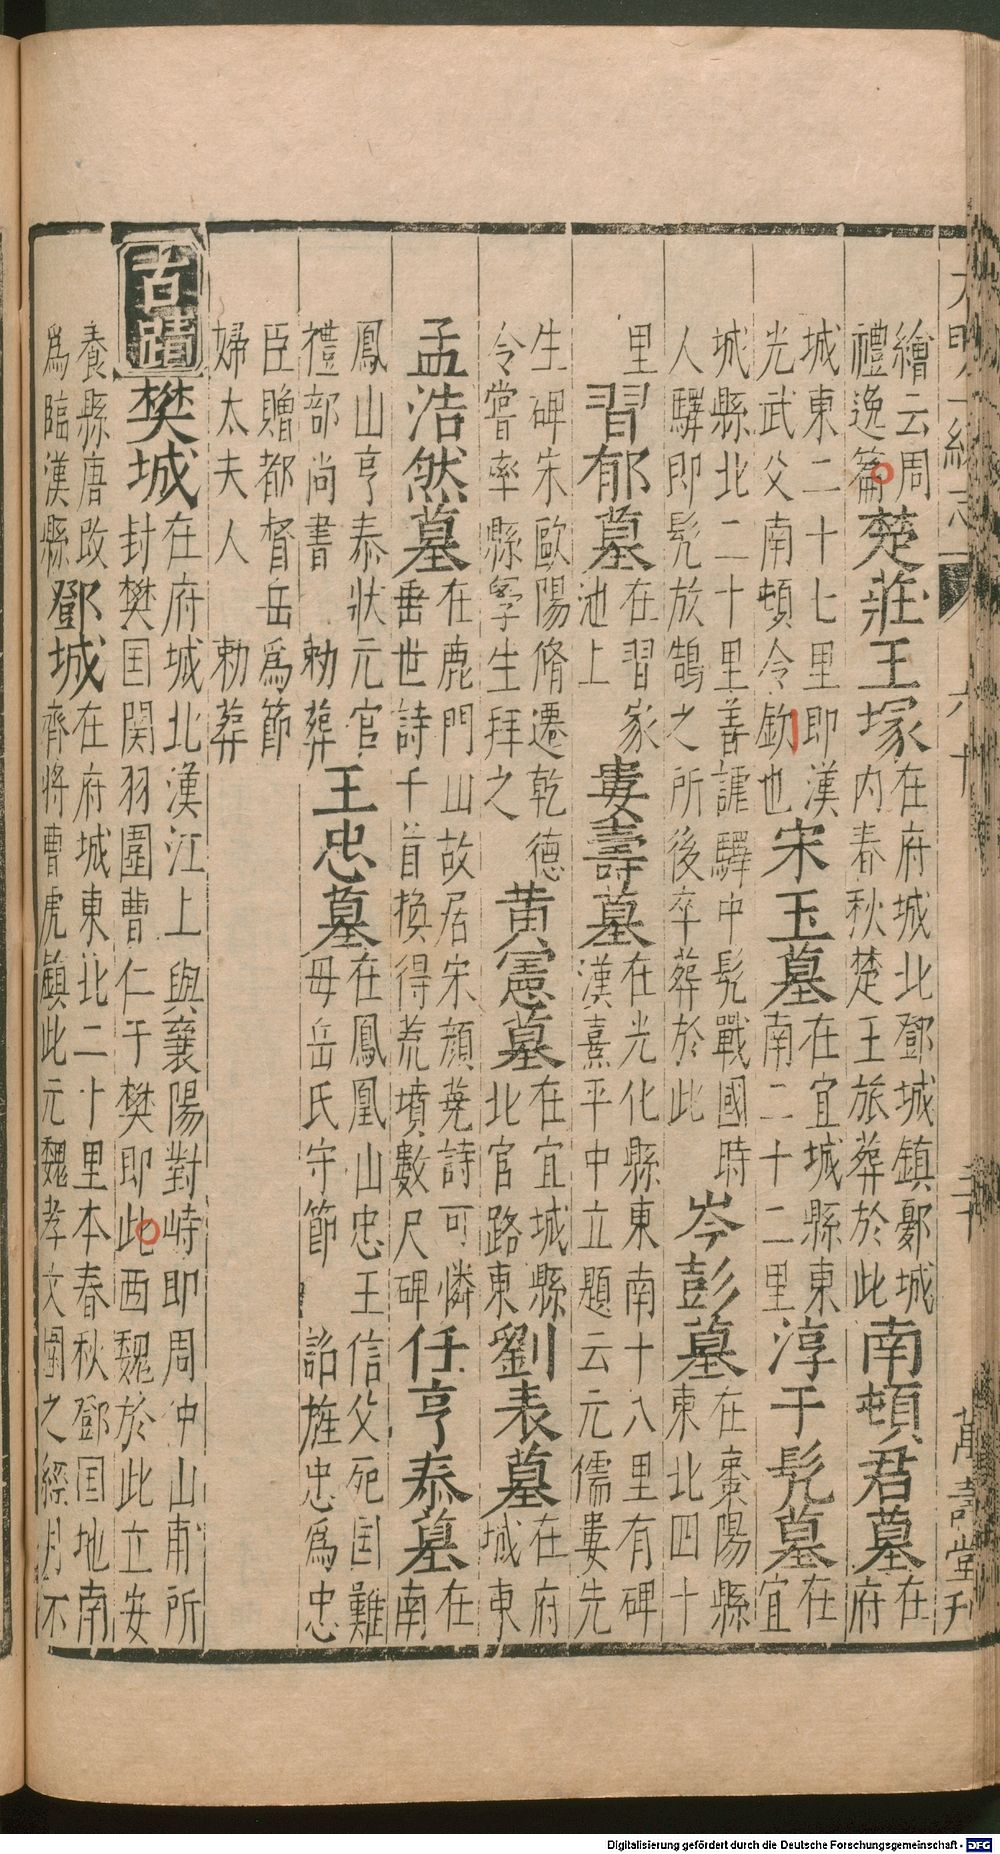 大明一統志 六十 萬壽堂刊
繪云周禮逸篇 楚莊王塚 在府城北鄧城鎮鄾城内春秋楚王旅葬於此 南頓君墓 在府
城東二十七里即漢光武父南頓令欽也 宋玉墓 在宜城縣東南二十二里 淳于髠墓 在宜
城縣北二十里善謔驛中髠戰國時人驛即髠放鵠之所後卒葬於此 岑彭墓 在棗陽縣東北四十
里 習郁墓 在習家池上 婁壽墓 在光化縣東南十八里有碑漢熹平中立題云元儒婁先
生碑宋歐陽脩遷乾德令嘗率縣學生拜之 黄憲墓 在宜城縣北官路東 劉表墓 在府城東
孟浩然墓 在鹿門山故居宋顔蕘詩可憐垂世詩千首換得荒墳數尺碑 任亨泰墓 在南
鳳山亨泰狀元官禮部尚書 勑葬 王忠墓 在鳳凰山忠王信父死国難母岳氏守節 詔旌忠爲忠
臣贈都督岳爲節婦太夫人 勑葬
古蹟 樊城 在府城北漢江上與襄陽對峙即周仲山甫所封樊国関羽圍曹仁于樊即此西魏於此立安
養縣唐改爲臨漢縣 鄧城 在府城東北二十里本春秋鄧国地南齊將曹虎鎮此元魏孝文圍之經月不
Digitalisierung gefördert durch die Deutsche Forschungsgemeinschaft - DFG